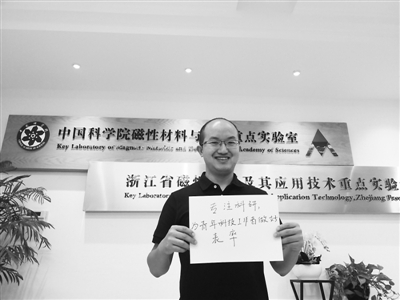 中国科学院磁性材料与 重点实验室
Key Laboratory of Magnetic Materials and Academy of Sciences
浙江省磁 及其应用技术重点实验
Key Laboratory Application Technology, Zhejiang
专注科研,
为青年科技工作者